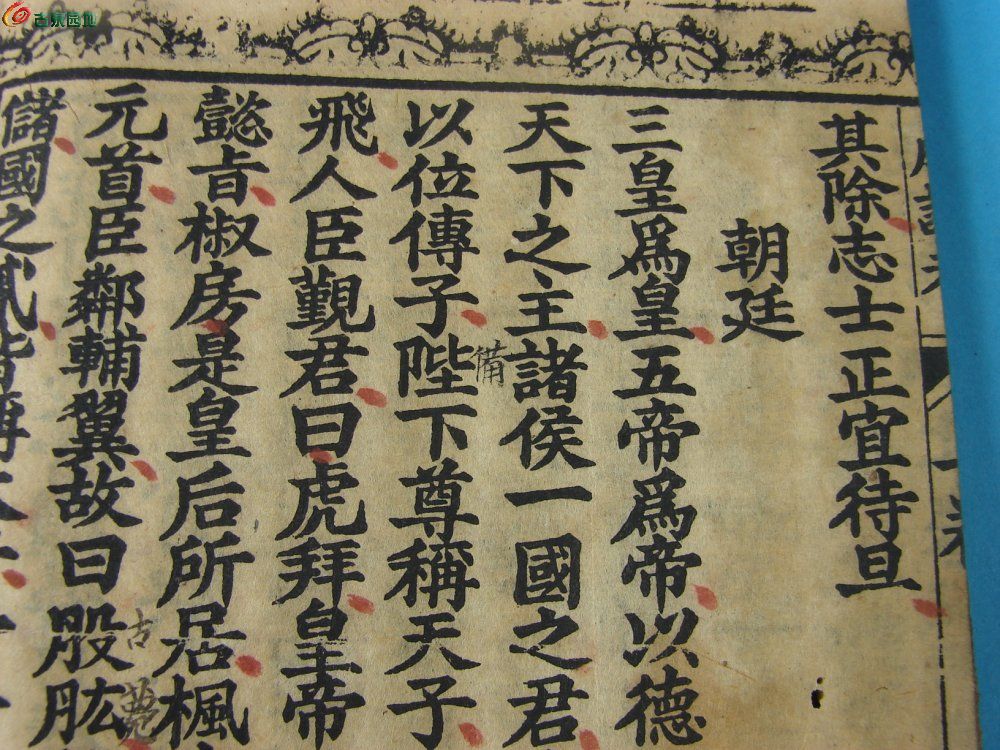 其除志士正宜待旦
朝廷
三皇爲皇五帝爲帝以德
天下之主諸侯一國之君
以位傳子陛下尊稱天子
備
飛人臣覲君曰虎拜皇帝
懿旨椒房是皇后所居楓
元首臣鄰輔翼故曰股肱
古
儲國之貳